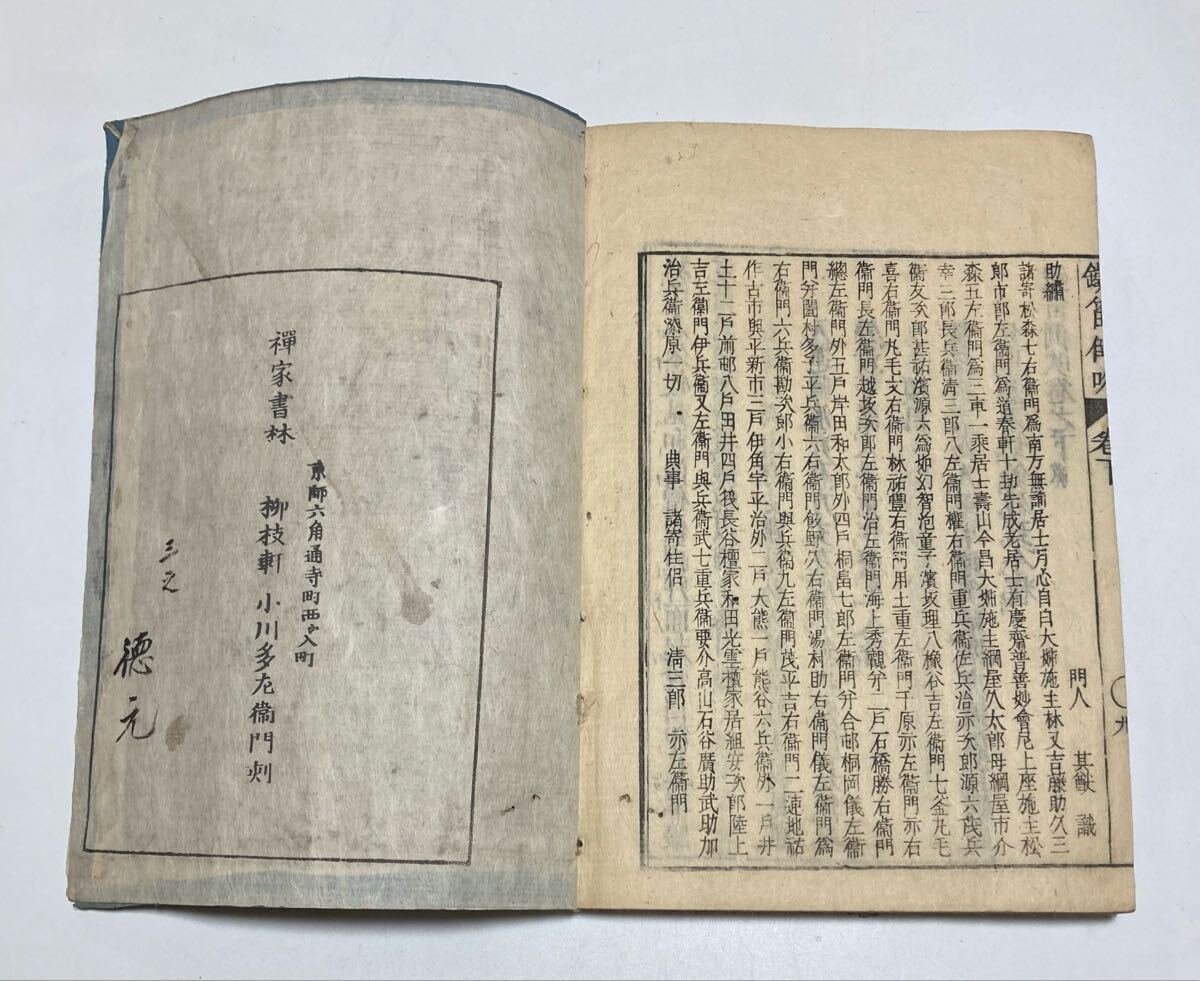 門人
識
助縁
諸寄松森七右衞門爲南方無諭居士月心自白大姉施主林又吉藤助久三
郎市郎左衞門爲道春軒十劫先成老居士有慶齋普善妙會尼上座施主松
森五左衞門爲三車一乘居士壽山令昌大姉施主綱屋久太郎母綱屋市介
幸三郎長兵衞清三郎八左衞門權右衞門重兵衞佐兵治亦次郎源六茂兵
衞友次郎甚祐濱源六爲如幻智泡童子濱坂理八橡谷吉左衞門七釜九毛
喜右衞門丸毛文右衞門林祐豐右衞門用土重左衞門千原亦左衞門亦右
衞門長左衞門越坂次郎左衞門治左衞門海上秀觀弁二戸石橋勝右衞門
總左衞門外五戸岸田和太郎外四戸桐畠七郎左衞門弁合邨桐岡儀左衞
門弁圖村多子平兵衞六右衞門飯野久右衞門湯村助右衞門儀左衞門爲
右衞門六兵衞勘次郎小右衞門與兵衞九左衞門茂平吉右衞門二連地祐
作古市與平新市三戸伊角宇平治外二戸大熊一戸熊谷六兵衞外一戸井
土十二戸前邨八戸田井四戸後長谷檀家和田光雲檀家居組安次郎陸上
吉左衞門伊兵衞又左衞門與兵衞武七重兵衞要介高山石谷廣助武助加
治兵衞漆原一切 典事 諸寄住侶 清三郎 亦左衞門
卷下
九
禪家書林
京師六角通寺町西へ入町
柳枝軒 小川多左衞門刻
徳元